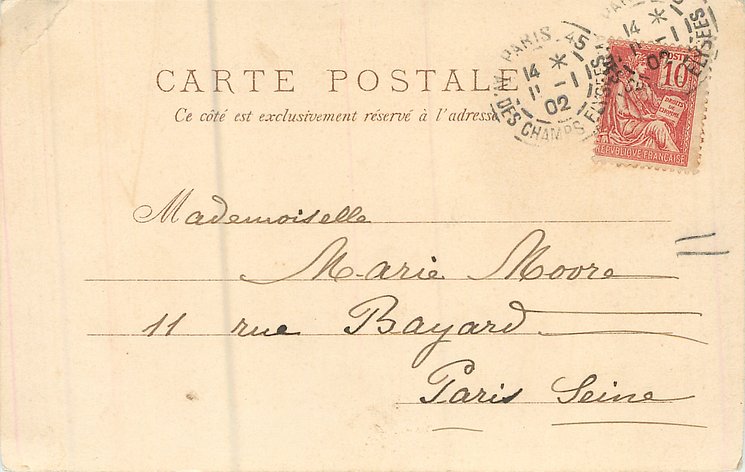 CARTE POSTALE
Ce côté est exclusivement réservé à l'adresse
PARIS. 45
14 *
11 -1
02
DES CHAMPS ELYSEES
POSTES
10
REPUBLIQUE FRANCAISE
Mademoiselle
Marie Moore
11 rue Bayard
Paris Seine